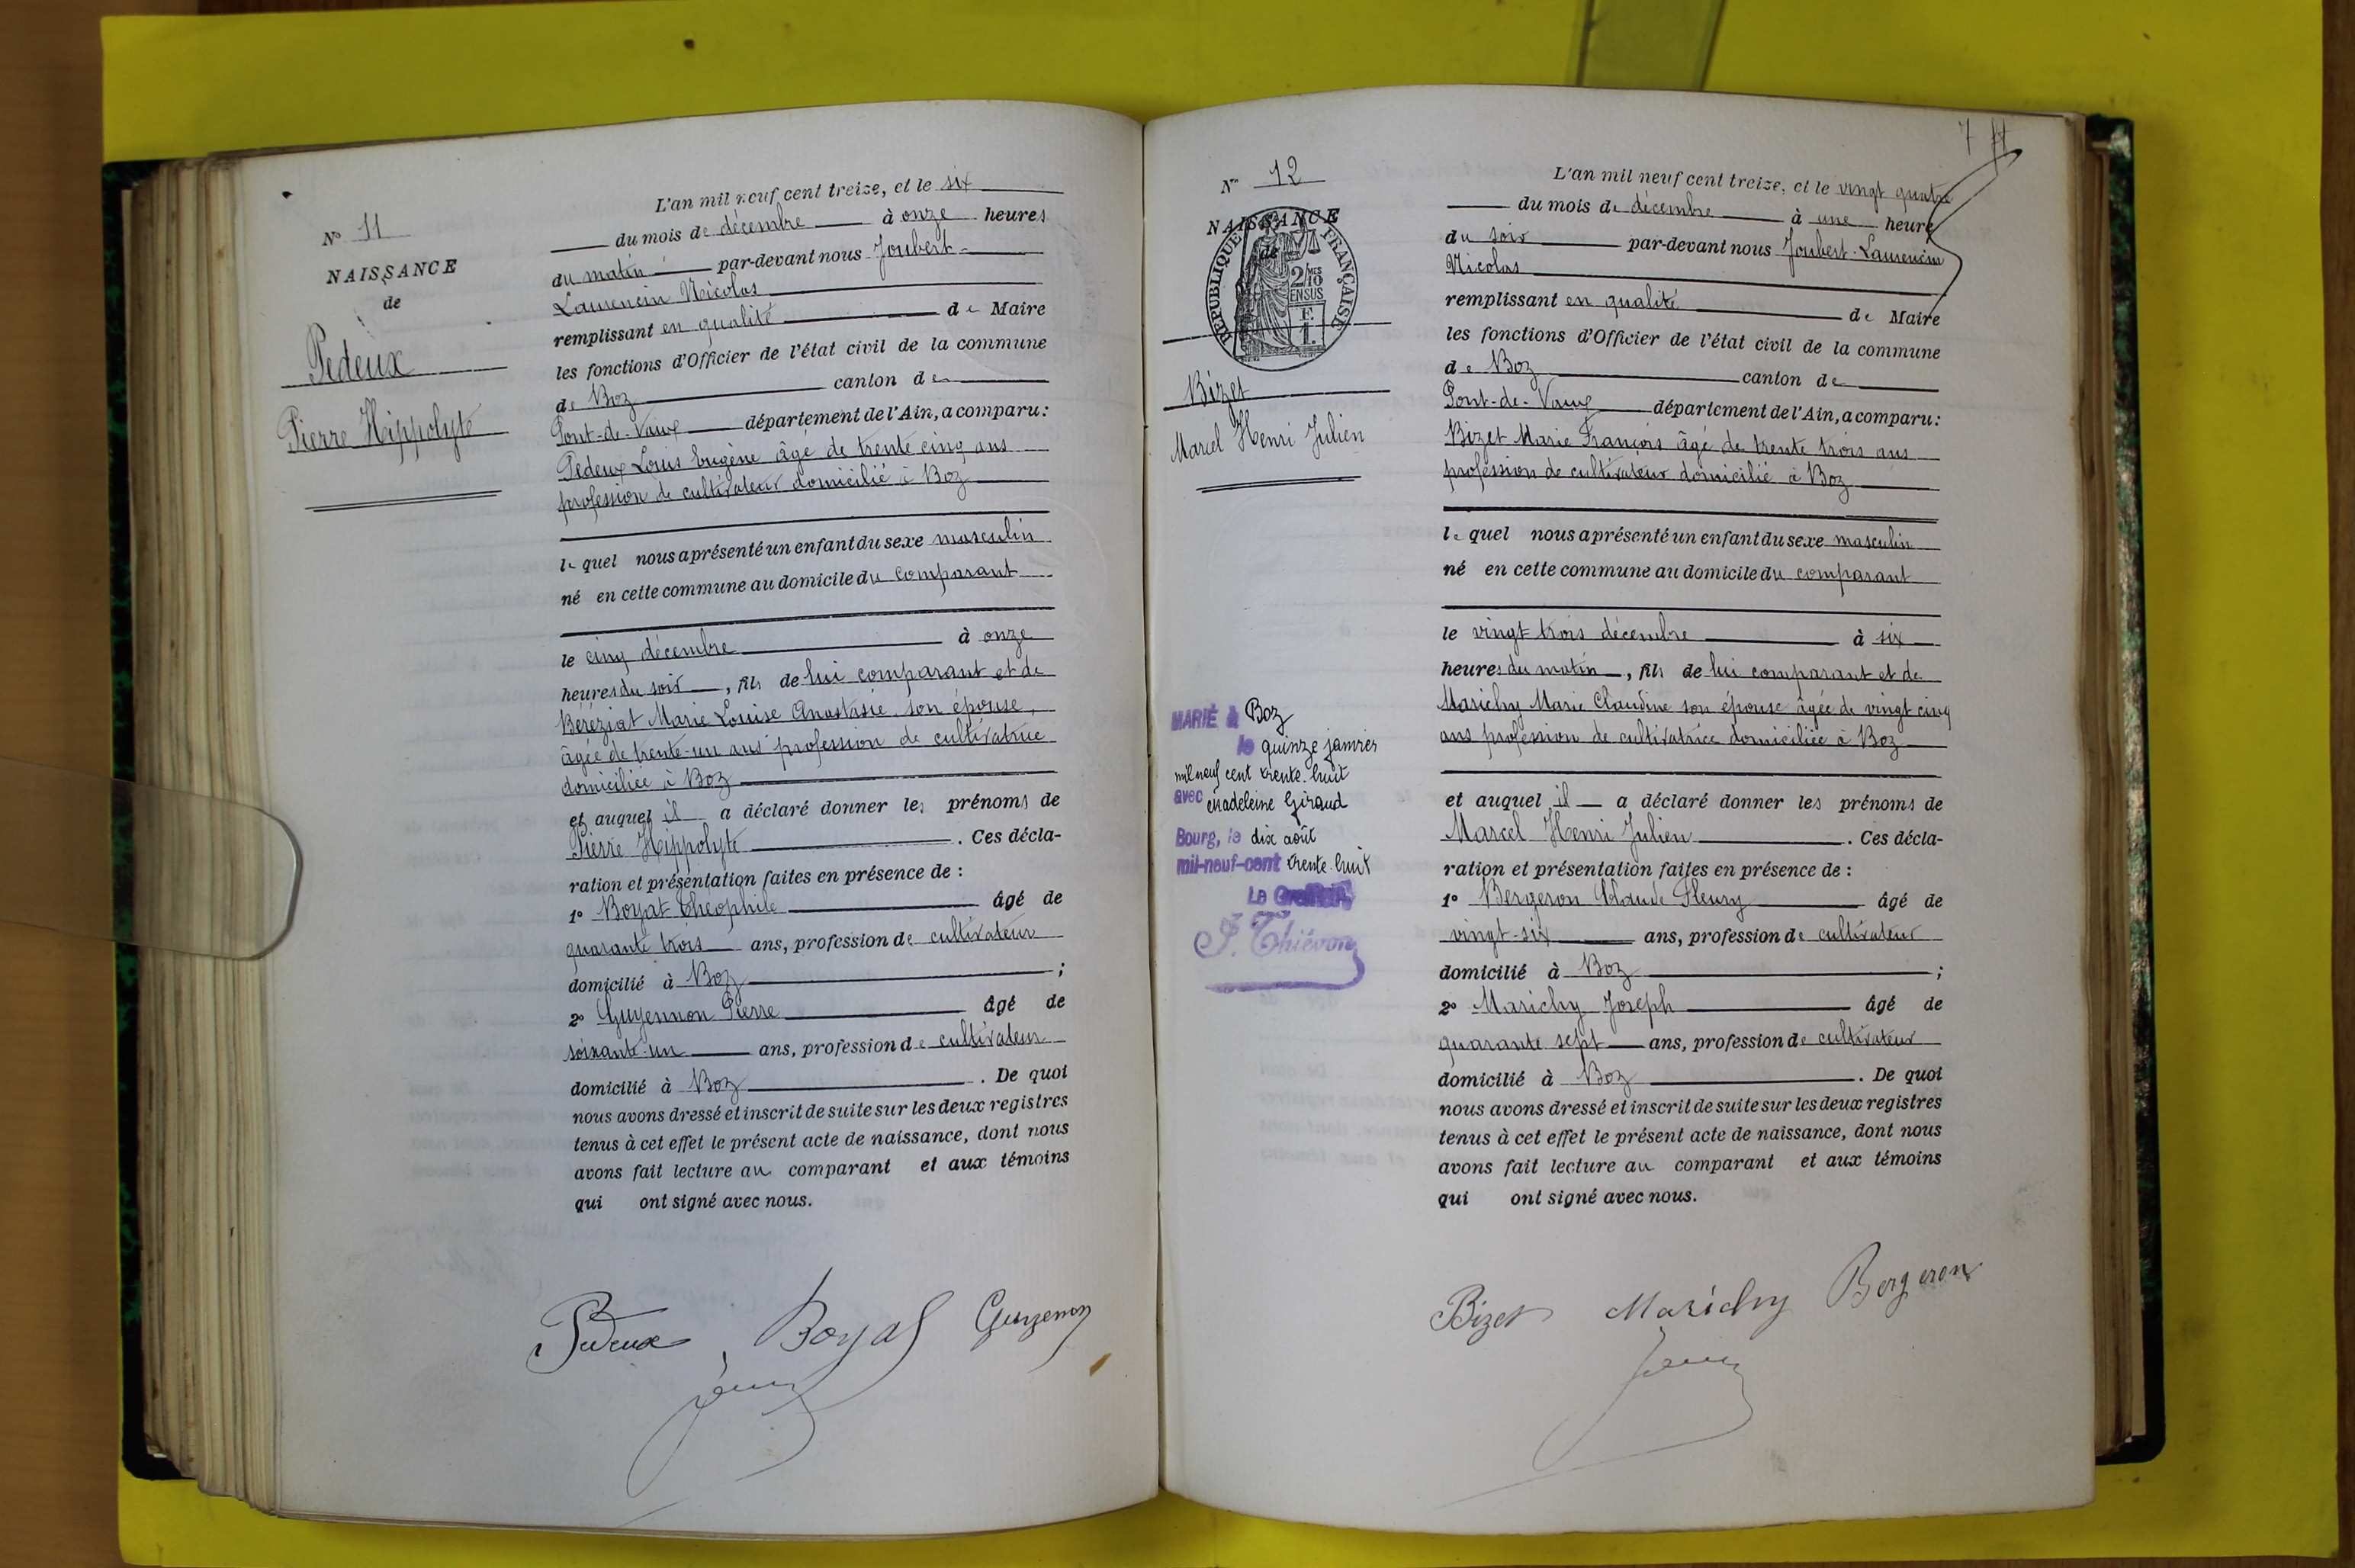 N° 11
NAISSANCE
de
Pedeux
Pierre Hippolyte
L'an mil neuf cent treize, et le six
du mois de décembre à onze heures
du matin par-devant nous Joubert-
Laurencin Nicolas
remplissant en qualité de Maire
les fonctions d'Officier de l'état civil de la commune
de Boz canton de
Pont-de-Vaux département de l'Ain, a comparu :
Pedeux Louis Eugène âgé de trente cinq ans
profession de cultivateur domicilié à Boz
lequel nous a présenté un enfant du sexe masculin
né en cette commune au domicile du comparant
le cinq décembre à onze
heures du soir, fils de lui comparant et de
Béréziat Marie Louise Anastasie son épouse,
âgée de trente-un ans profession de cultivatrice
domiciliée à Boz
et auquel il a déclaré donner les prénoms de
Pierre Hippolyte. Ces décla-
ration et présentation faites en présence de :
1° Boyat Théophile âgé de
quarante trois ans, profession de cultivateur
domicilié à Boz ;
2° Guyennon Pierre âgé de
soixante-un ans, profession de cultivateur
domicilié à Boz. De quoi
nous avons dressé et inscrit de suite sur les deux registres
tenus à cet effet le présent acte de naissance, dont nous
avons fait lecture au comparant et aux témoins
qui ont signé avec nous.
Pedeux Boyat Guyenon
7
N° 12
NAISSANCE
de
REPUBLIQUE FRANÇAISE
2/10 MES
EN SUS
E.
1.
Bizet
Marcel Henri Julien
MARIÉ à Boz
le quinze janvier
mil neuf cent trente-huit
avec Madeleine Giraud
Bourg, le dix août
mil-neuf-cent trente-huit
Le
J. Thiévon
L'an mil neuf cent treize, et le vingt quatre
du mois de décembre à une heure
du soir par-devant nous Joubert-Laurencin
Nicolas
remplissant en qualité de Maire
les fonctions d'Officier de l'état civil de la commune
de Boz canton de
Pont-de-Vaux département de l'Ain, a comparu :
Bizet Marie François âgé de trente trois ans
profession de cultivateur domicilié à Boz
lequel nous a présenté un enfant du sexe masculin
né en cette commune au domicile du comparant
le vingt trois décembre à six
heures du matin, fils de lui comparant et de
Marichy Marie Claudine son épouse âgée de vingt cinq
ans profession de cultivatrice domiciliée à Boz
et auquel il a déclaré donner les prénoms de
Marcel Henri Julien. Ces décla-
ration et présentation faites en présence de :
1° Bergeron Claude Fleury âgé de
vingt-six ans, profession de cultivateur
domicilié à Boz ;
2° Marichy Joseph âgé de
quarante sept ans, profession de cultivateur
domicilié à Boz. De quoi
nous avons dressé et inscrit de suite sur les deux registres
tenus à cet effet le présent acte de naissance, dont nous
avons fait lecture au comparant et aux témoins
qui ont signé avec nous.
Bizet Marichy Bergeron